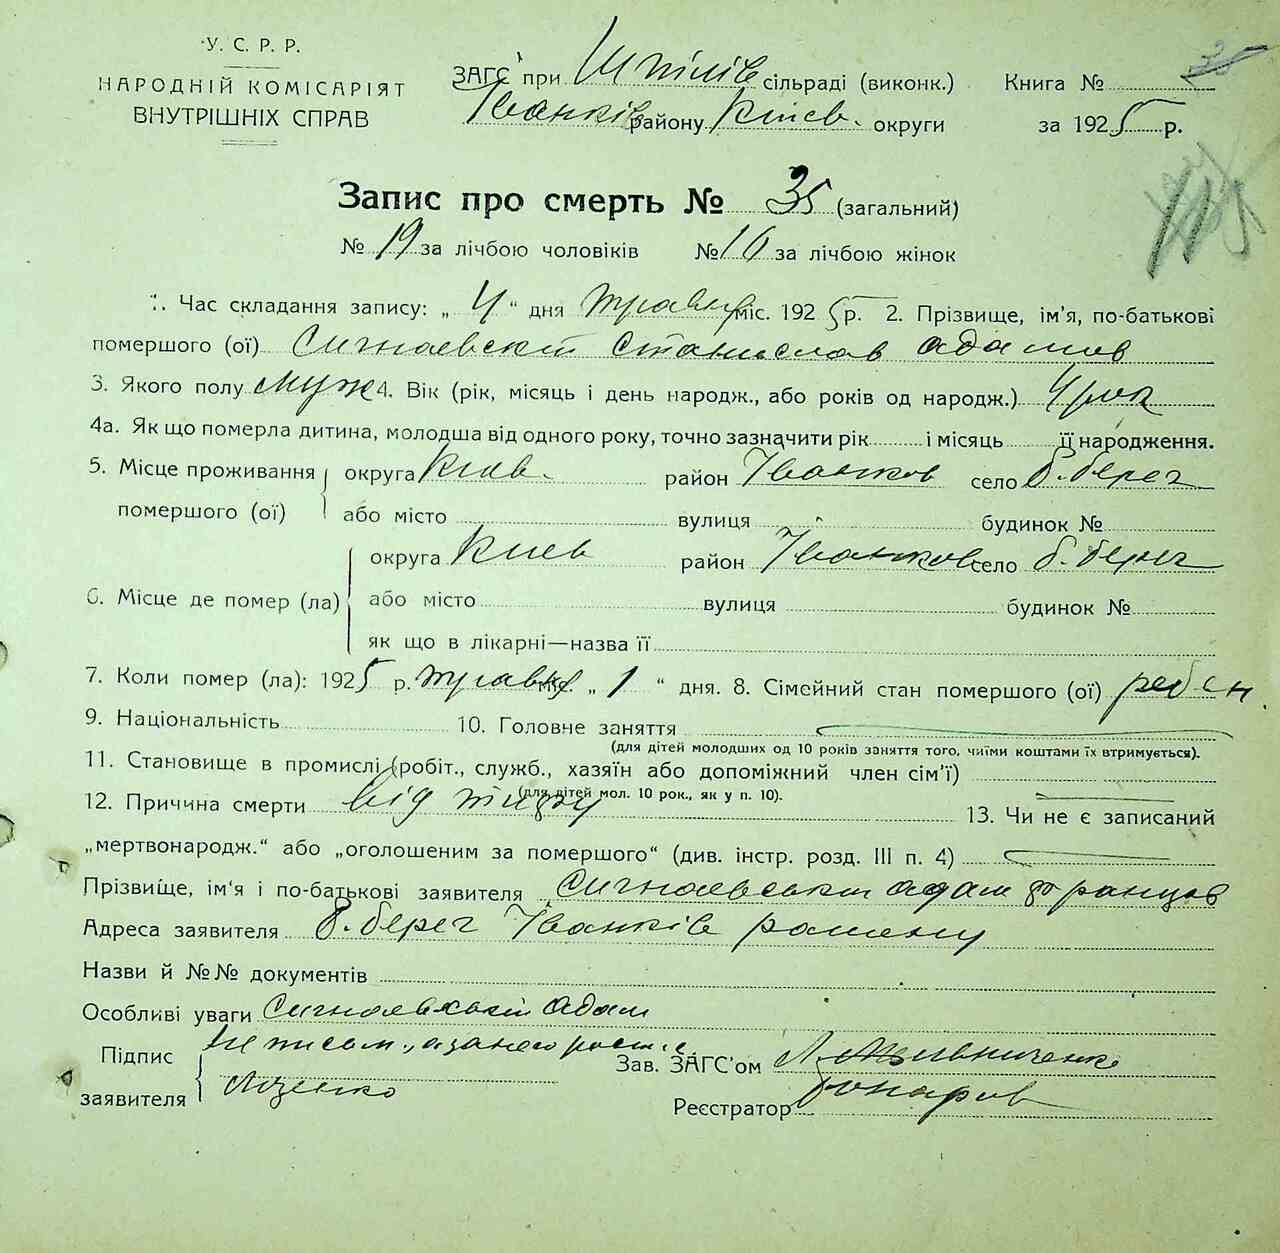 У. С. Р. Р.
НАРОДНІЙ КОМІСАРІЯТ
ВНУТРІШНІХ СПРАВ
ЗАГС при Шпілів сільраді (виконк.)
Іванків району Київ. округи
Книга №
за 1925 р.
Запис про смерть № 35 (загальний)
№ 19 за лічбою чоловіків № 16 за лічбою жінок
1. Час складання запису: „ 4 “ дня травня міс. 1925 р. 2. Прізвище, ім'я, по-батькові
помершого (ої) Сигнаевскій Станислав Адамов
3. Якого полу муж 4. Вік (рік, місяць і день народж., або років од народж.) 4 рок
4а. Як що померла дитина, молодша від одного року, точно зазначити рік і місяць її народження.
5. Місце проживання помершого (ої) округа Киев. район Іванков село б. берег
або місто вулиця будинок №
6. Місце де помер (ла) округа Киев район Іванков село б. берег
або місто вулиця будинок №
як що в лікарні—назва її
7. Коли помер (ла): 1925 р. травня міс. „ 1 “ дня. 8. Сімейний стан помершого (ої) ребен.
9. Національність 10. Головне заняття
(для дітей молодших од 10 років заняття того, чиїми коштами їх втримується).
11. Становище в промислі (робіт., служб., хазяїн або допоміжний член сім'ї)
(для дітей мол. 10 рок., як у п. 10).
12. Причина смерти від 13. Чи не є записаний
„мертвонародж.“ або „оголошеним за помершого“ (див. інстр. розд. III п. 4)
Прізвище, ім'я і по-батькові заявителя Сигнаевський Адам Францов
Адреса заявителя б. берег Іванків району
Назви й №№ документів
Особливі уваги Сигнаевський Адам
Підпис заявителя
Зав. ЗАГС'ом
Реєстратор